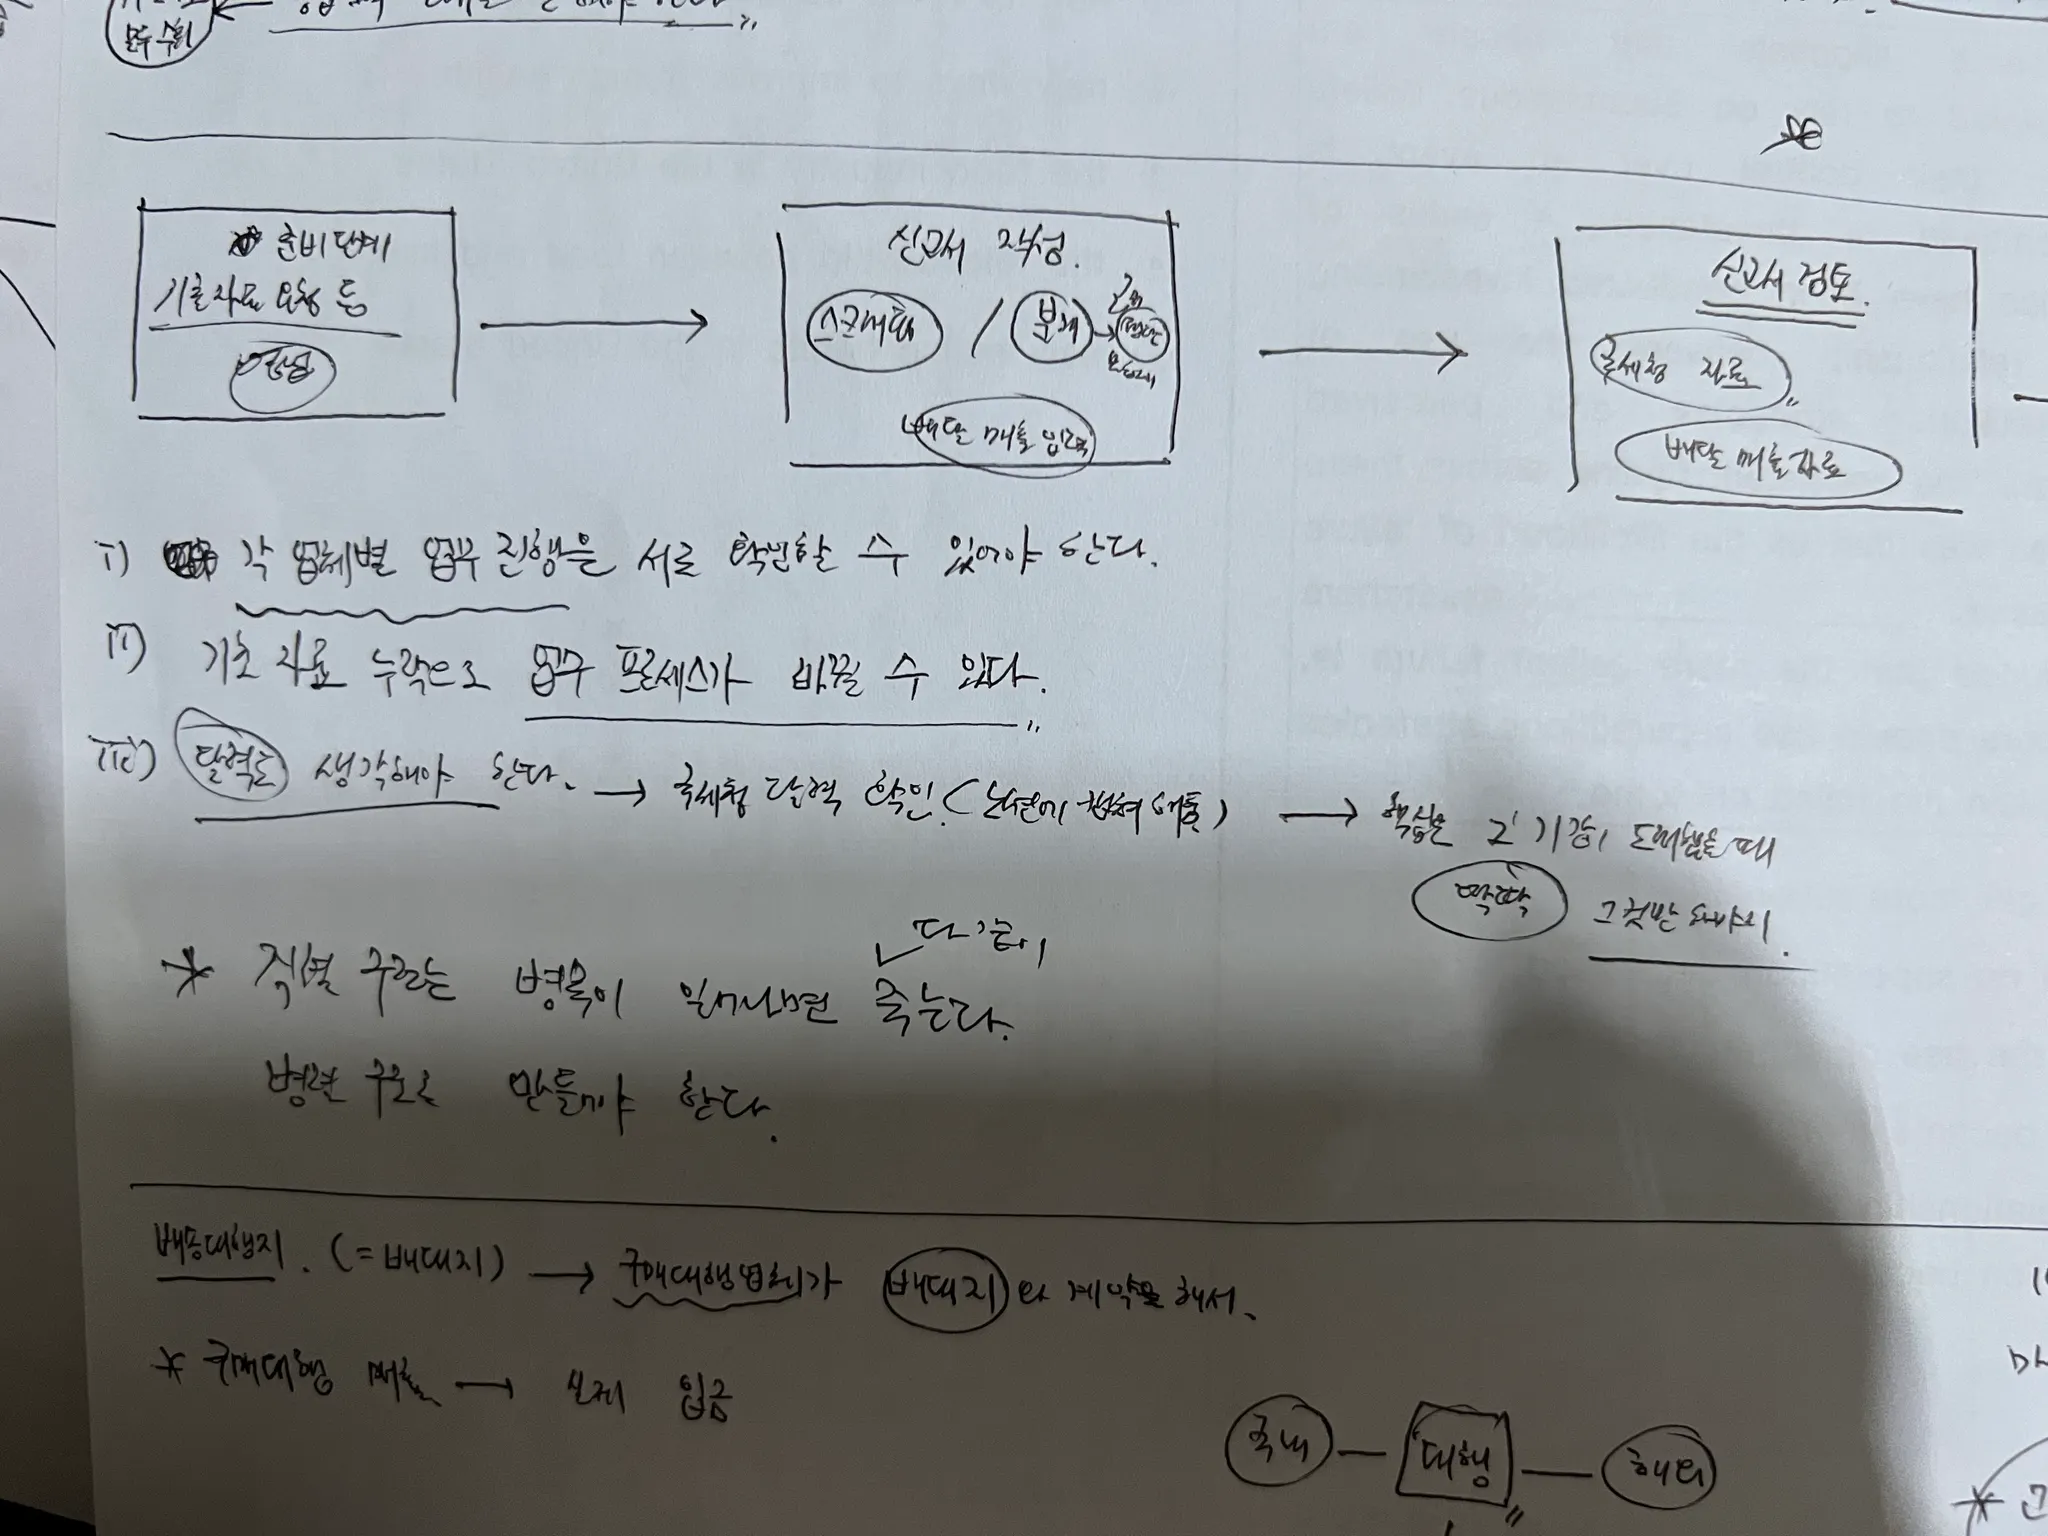 모두 수취
준비단계
기초자료 요청 등
신고서 작성.
스크래핑 / 분개 →
배달 매출 입력
신고서 검토.
국세청 자료
배달 매출자료
i) 각 업체별 업무 진행을 서로 확인할 수 있어야 한다.
ii) 기초 자료 누락으로 업무 프로세스가 바뀔 수 있다.
iii) 달력도 생각해야 한다. → 국세청 달력 확인. → 핵심은 그 기간이 도래했을 때
딱딱 그것만 해야지.
다 같이
* 직렬 구조는 병목이 일어나면 죽는다.
병렬 구조로 만들어야 한다.
배송대행지. (= 배대지) → 구매대행업체가 배대지와 계약을 해서.
* 구매대행 매출 → 실제 입금
국내 — 대행 — 해외